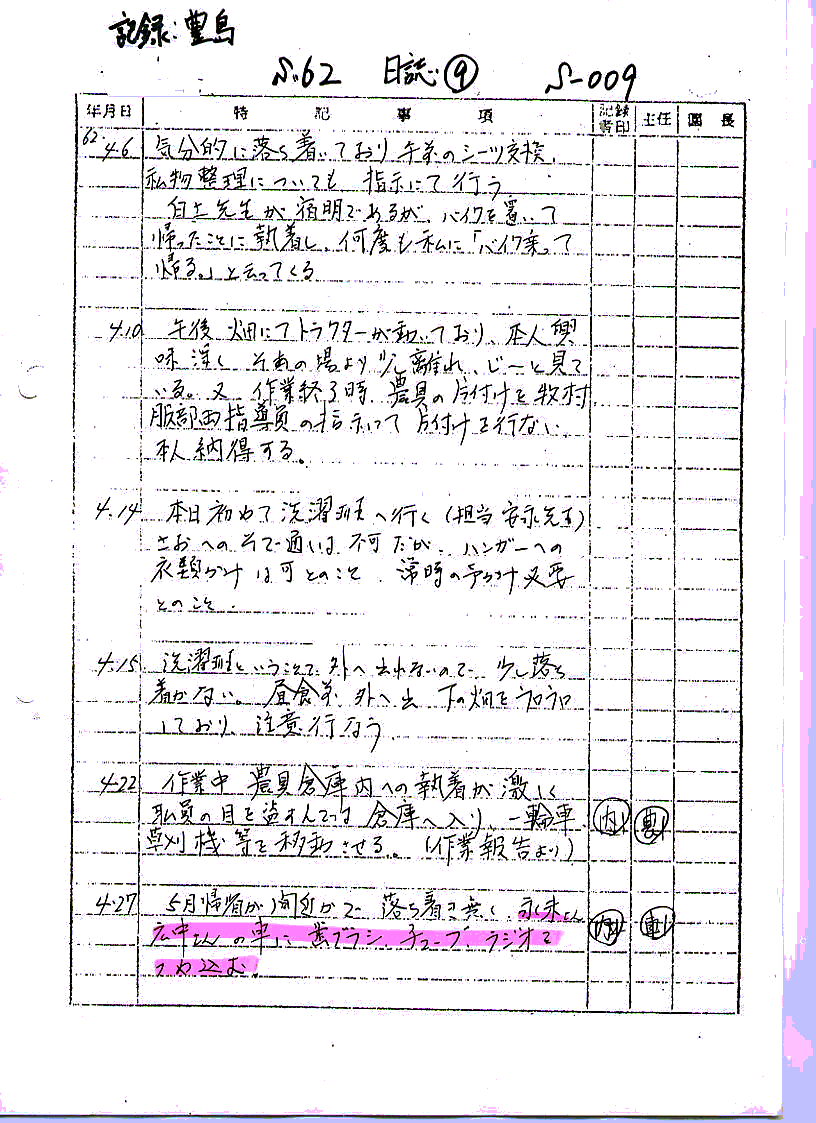 記録:豊島
S.62 日誌⑨ S-009
年月日 特記事項 記録者印 主任 園長
62.4.6 気分的に落ち着いており 午前のシーツ交換、
私物整理についても 指示にて行う
先生が宿明であるが、バイクを置いて
帰ったことに執着し、何度も私に「バイク乗って
帰る。」と云ってくる
4.10 午後 畑にてトラクターが動いており、本人興
味深く その場より少し離れ、じーと見て
いる。又 作業終了時、農具の片付けを牧村
服部両指導員の指示にて 片付けを行ない
本人納得する。
4.14 本日初めて洗濯班へ行く(担当 安永先生)
さおへのそで通しは不可だが、ハンガーへの
衣類かけは可とのこと、常時の声かけ必要
とのこと.
4.15 洗濯班ということで 外へ出れないので 少し落ち
着かない。昼食前 外へ出 下の畑をウロウロ
しており、注意行なう
4.22 作業中 農具倉庫内への執着が激しく
職員の目を盗んでは 倉庫へ入り、一輪車、
草刈機等を移動させる。(作業報告より)
内 豊
4.27 5月帰省が間近かで 落ち着き無く、永末さん
広中さんの車に 歯ブラシ、チューブ ラジオを
つめ込む。
内 豊